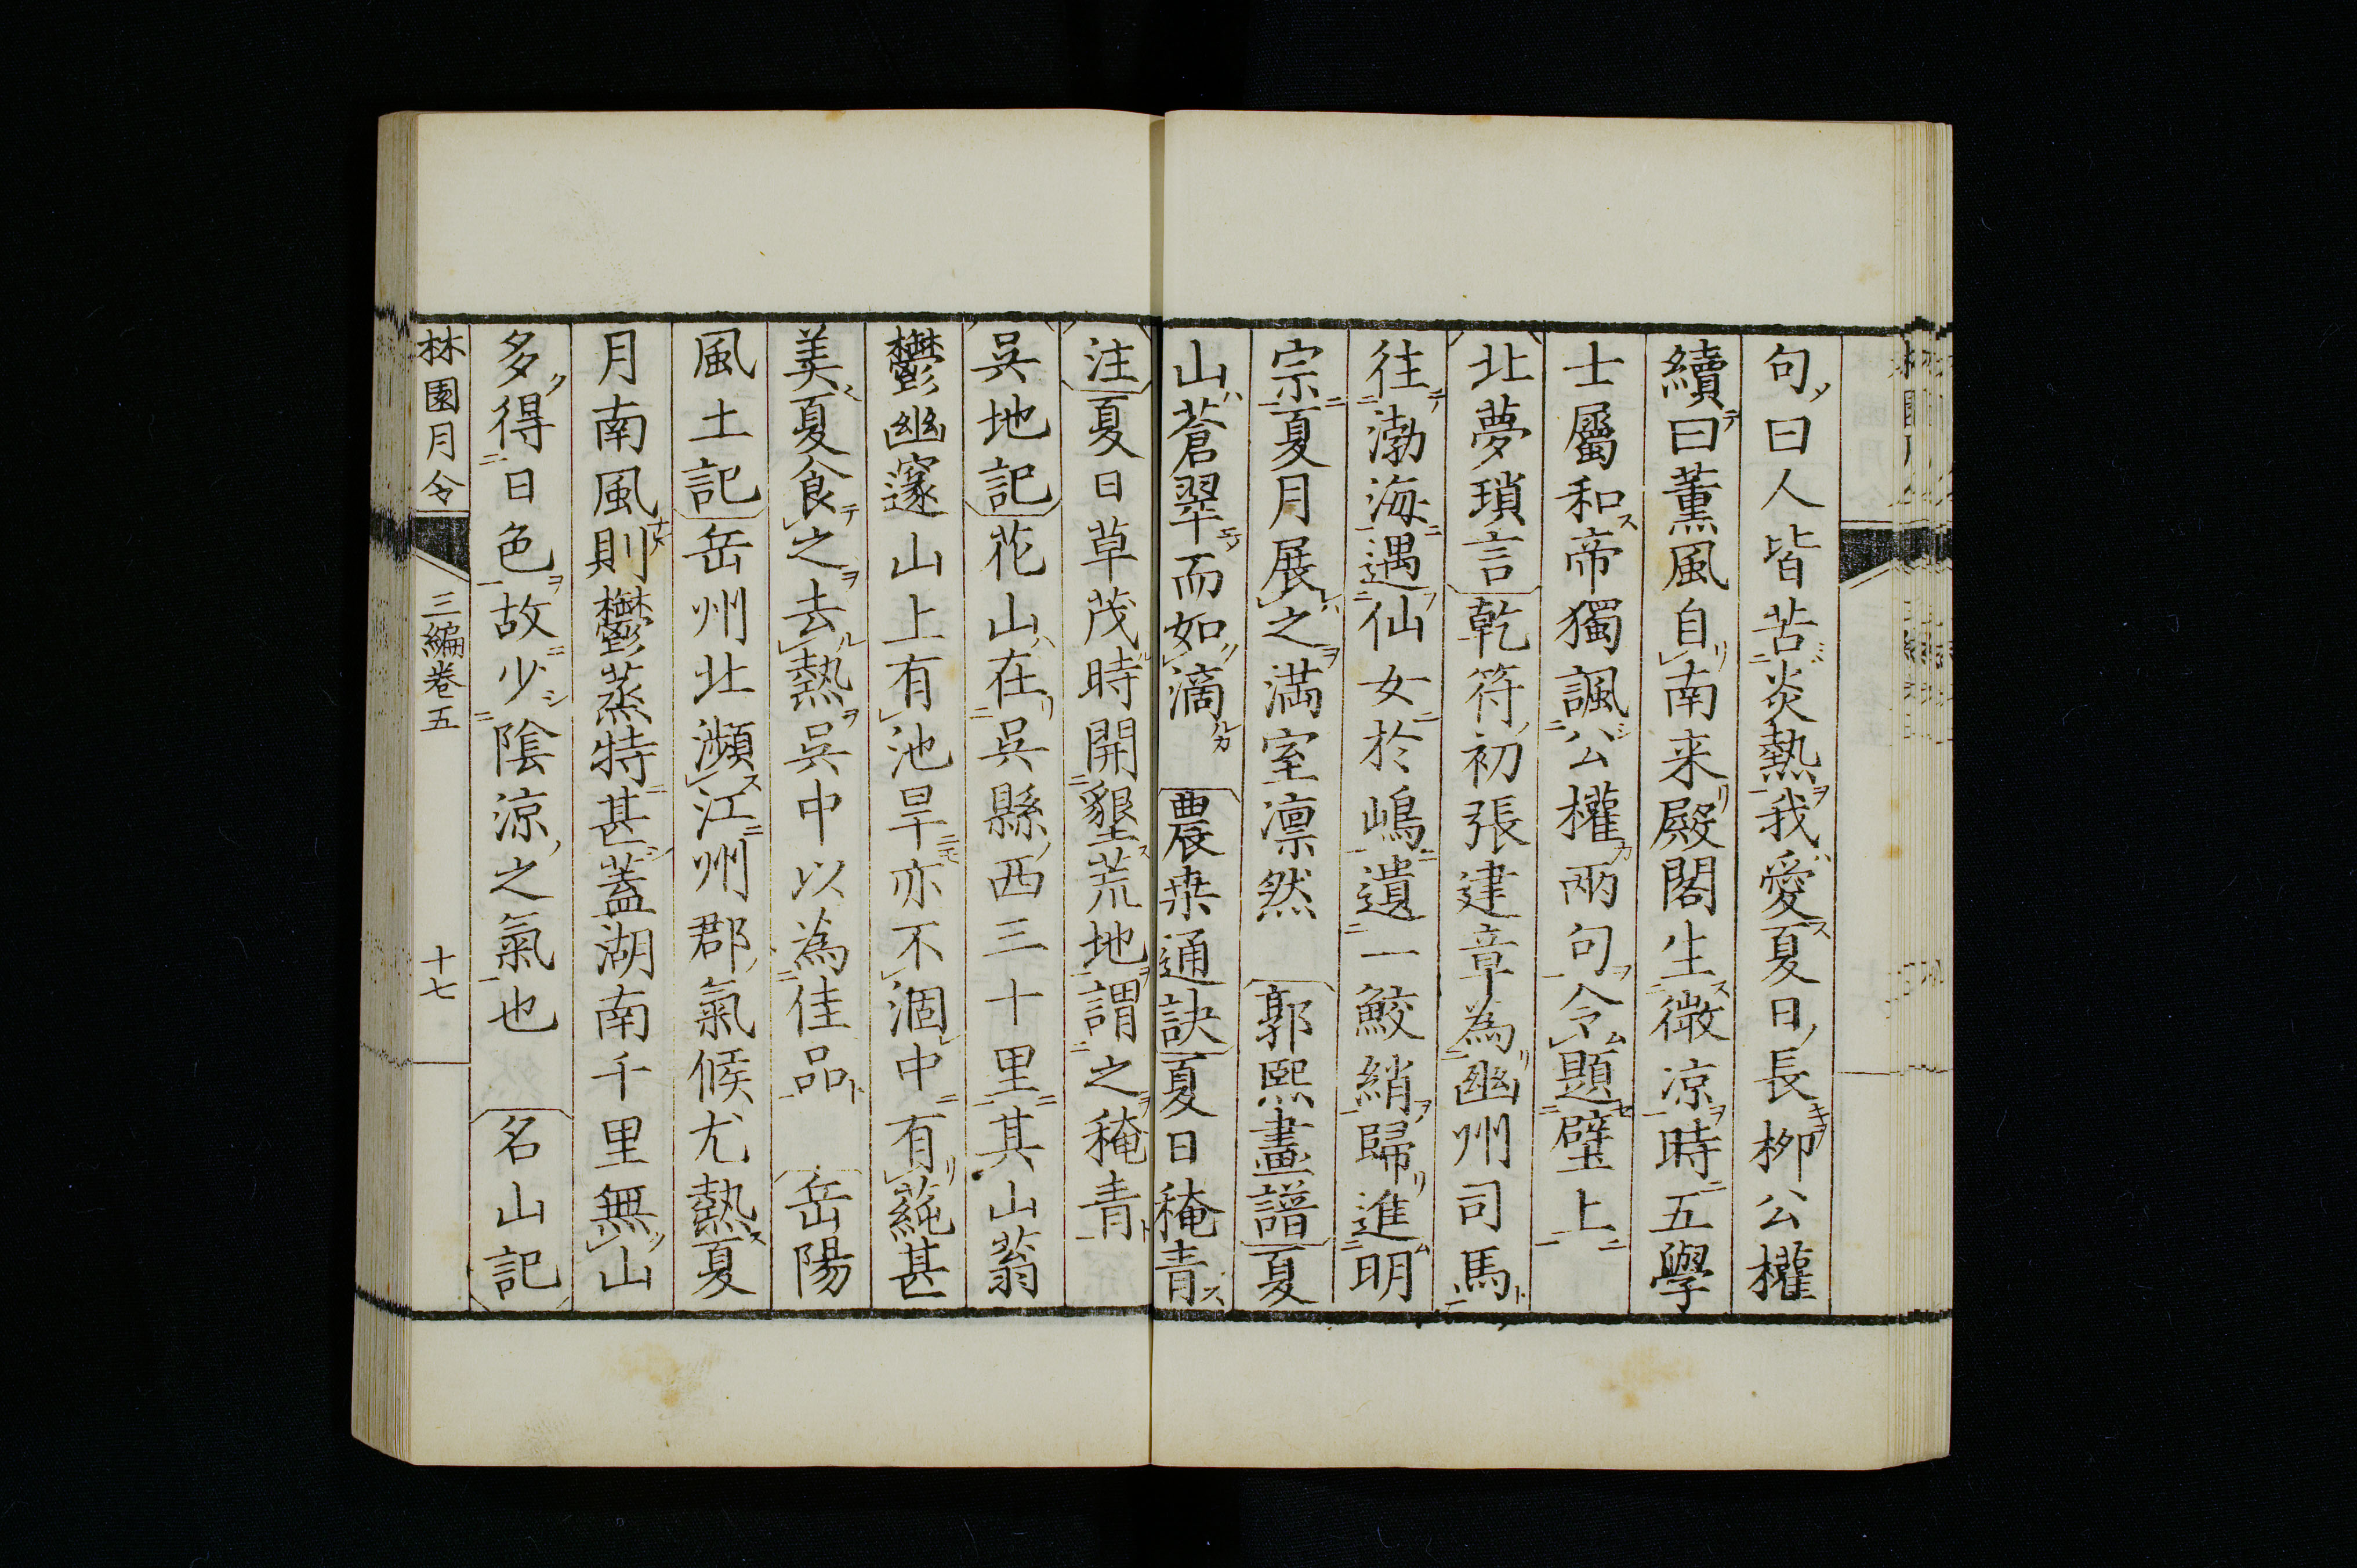 句曰人皆苦炎熱我愛夏日長柳公權
續曰薫風自南来殿閣生微凉時五學
士屬和帝獨諷公權兩句令題壁上
北夢瑣言乾符初張建章為幽州司馬
往渤海遇仙女於嶋遺一鮫綃歸進明
宗夏月展之満室凛然 郭熙畫譜夏
山蒼翠而如滴 農桒通訣夏日穐青
注夏日草茂時開墾荒地謂之穐青
呉地記花山在呉縣西三十里其山蓊
欝幽邃山上有池旱亦不涸中有蓴甚
美夏食之去熱呉中以為佳品 岳陽
風土記岳州北瀕江州郡氣候尤熱夏
月南風則欝蒸特甚蓋湖南千里無山
多得日色故少陰涼之氣也 名山記
林園月令 三編卷五 十七